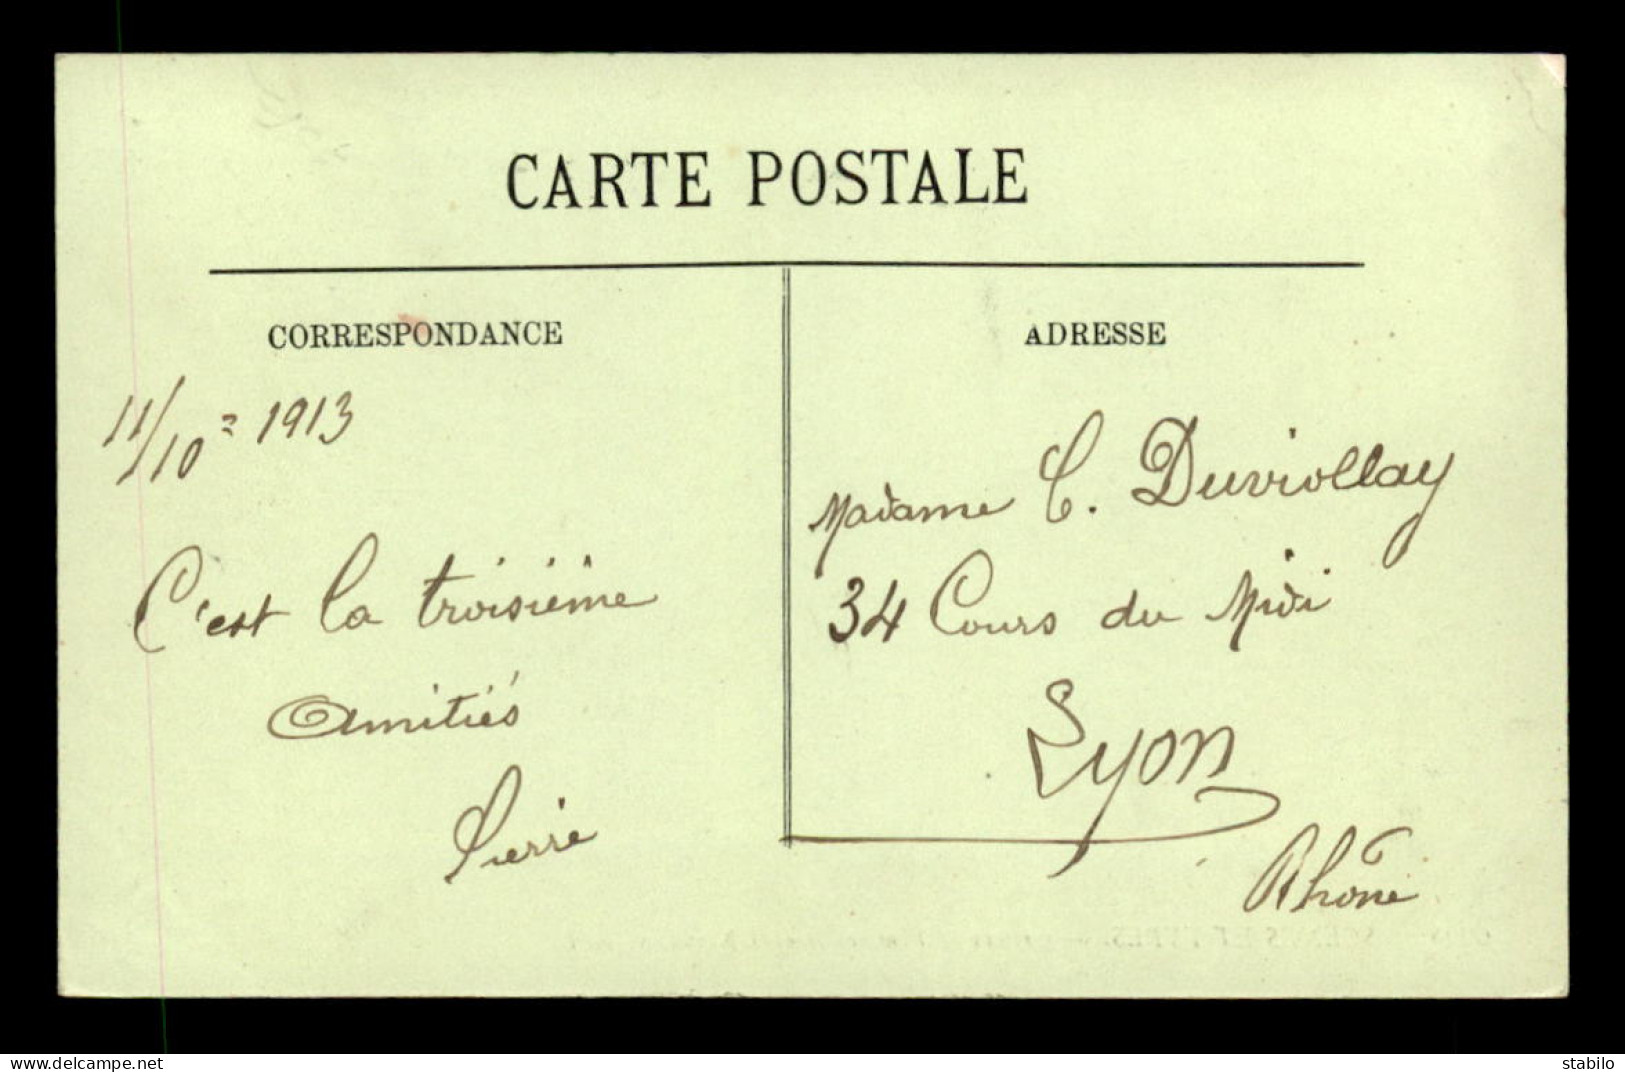 CARTE POSTALE
CORRESPONDANCE
11/10 = 1913
C'est la troisième
Amitiés
Pierre
ADRESSE
Madame C. Duviollay
34 Cours du Midi
Lyon
Rhône
SCÈNES ET TYPES.
www.delcampe.net
stabilo